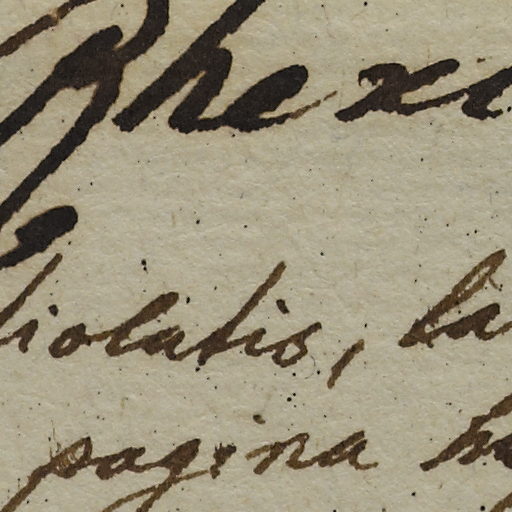 Rhexi
liolatis, la
pagina